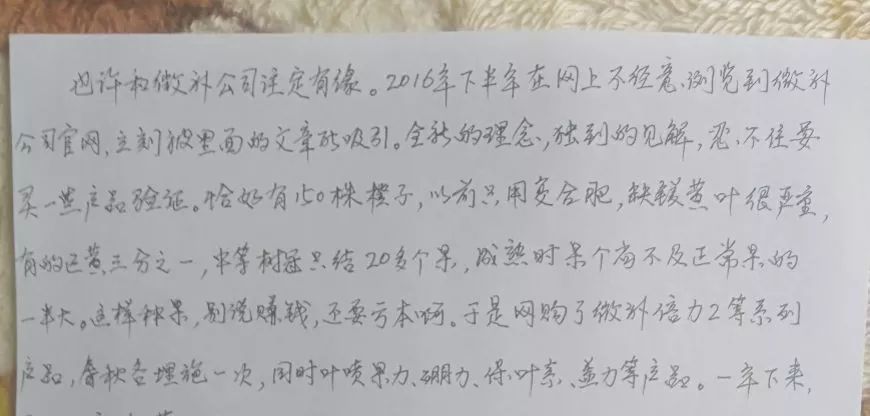 也许和微补公司注定有缘。2016年下半年在网上不经意浏览到微补
公司官网,立刻被里面的文章所吸引。全新的理念,独到的见解,忍不住要
买一些产品验证。恰好有150株橙子,以前只用复合肥,缺镁黄叶很严重,
有的还黄三分之一,中等树冠只结20多个果,成熟时果个尚不及正常果的
一半大。这样种果,别说赚钱,还要亏本啊。于是网购了微补倍力2等系列
产品,春秋各埋施一次,同时叶喷果力、硼力、保叶素、益力等产品。一年下来,